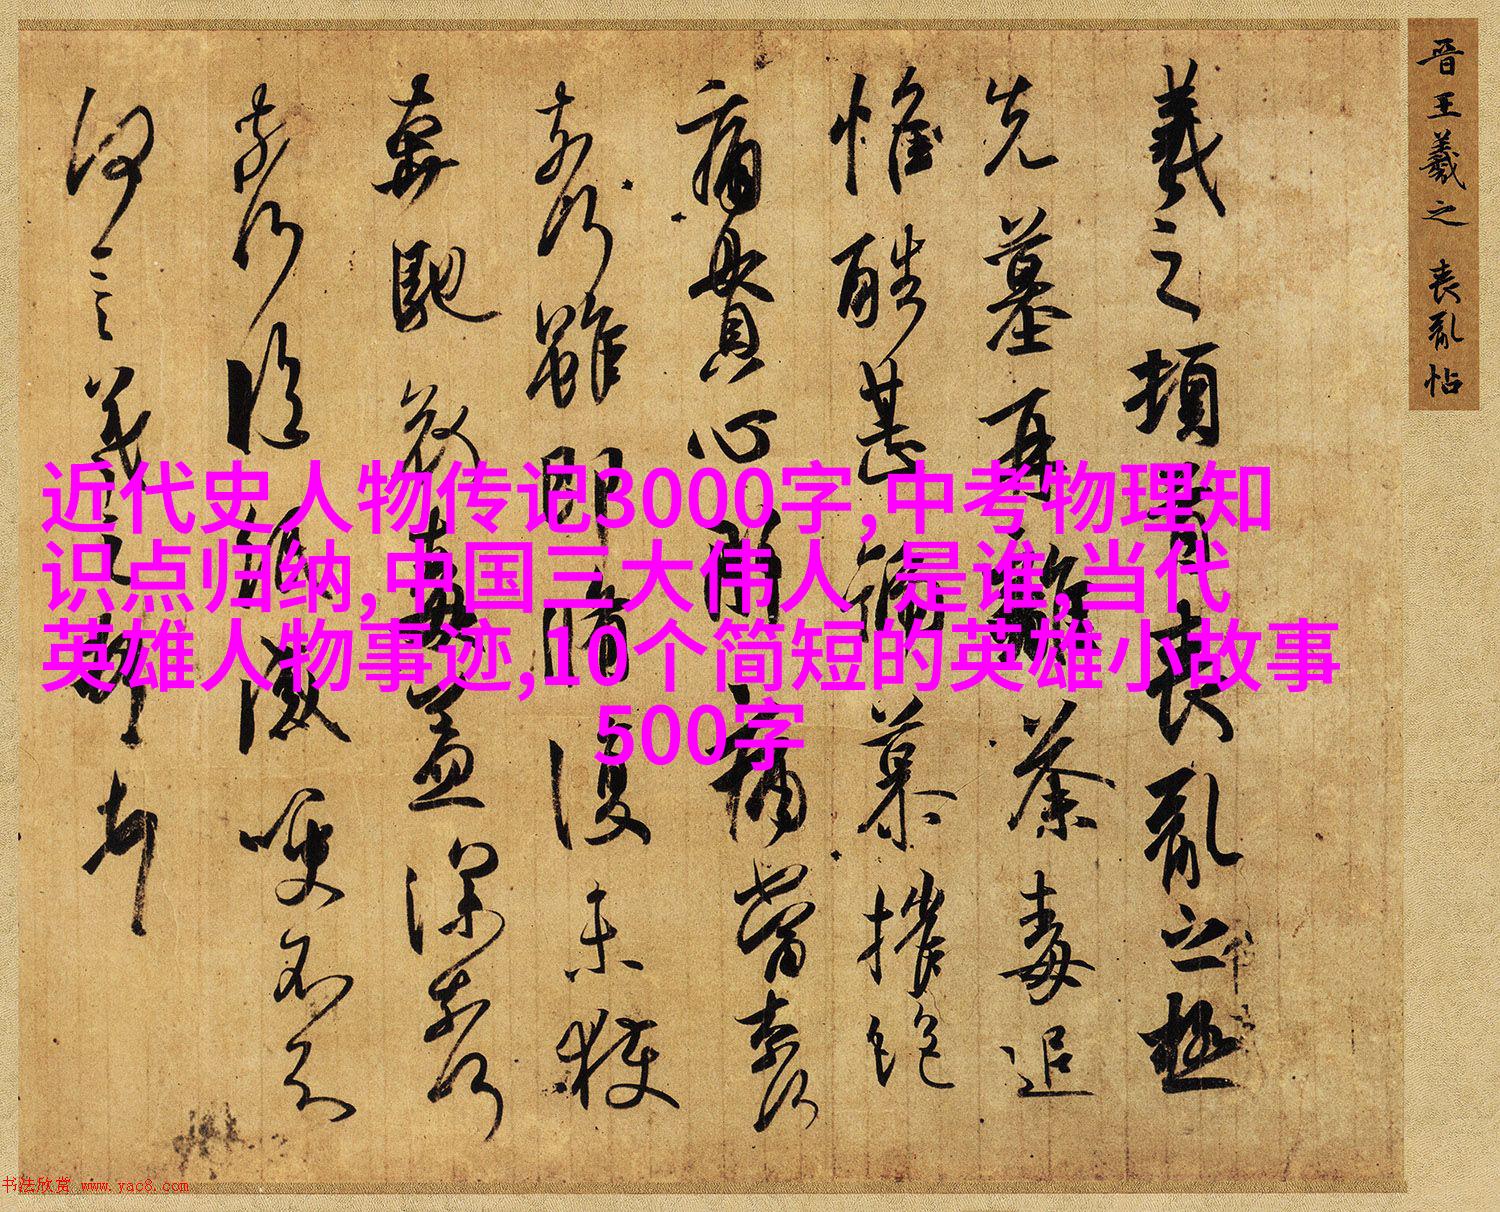 晋王羲之 喪亂帖
羲之頓首喪亂之極
先墓再離荼毒追
惟酷甚號慕摧絕
痛貫心肝痛當奈何
奈何雖即脩復未獲
奔馳哀毒益深奈何
奈何臨紙感哽不知
何言羲之頓首頓首
近代史人物传记3000字,中考物理知
识点归纳,中国三大伟人 是谁,当代
英雄人物事迹,10个简短的英雄小故事
500字
书法欣赏 www.yac8.com